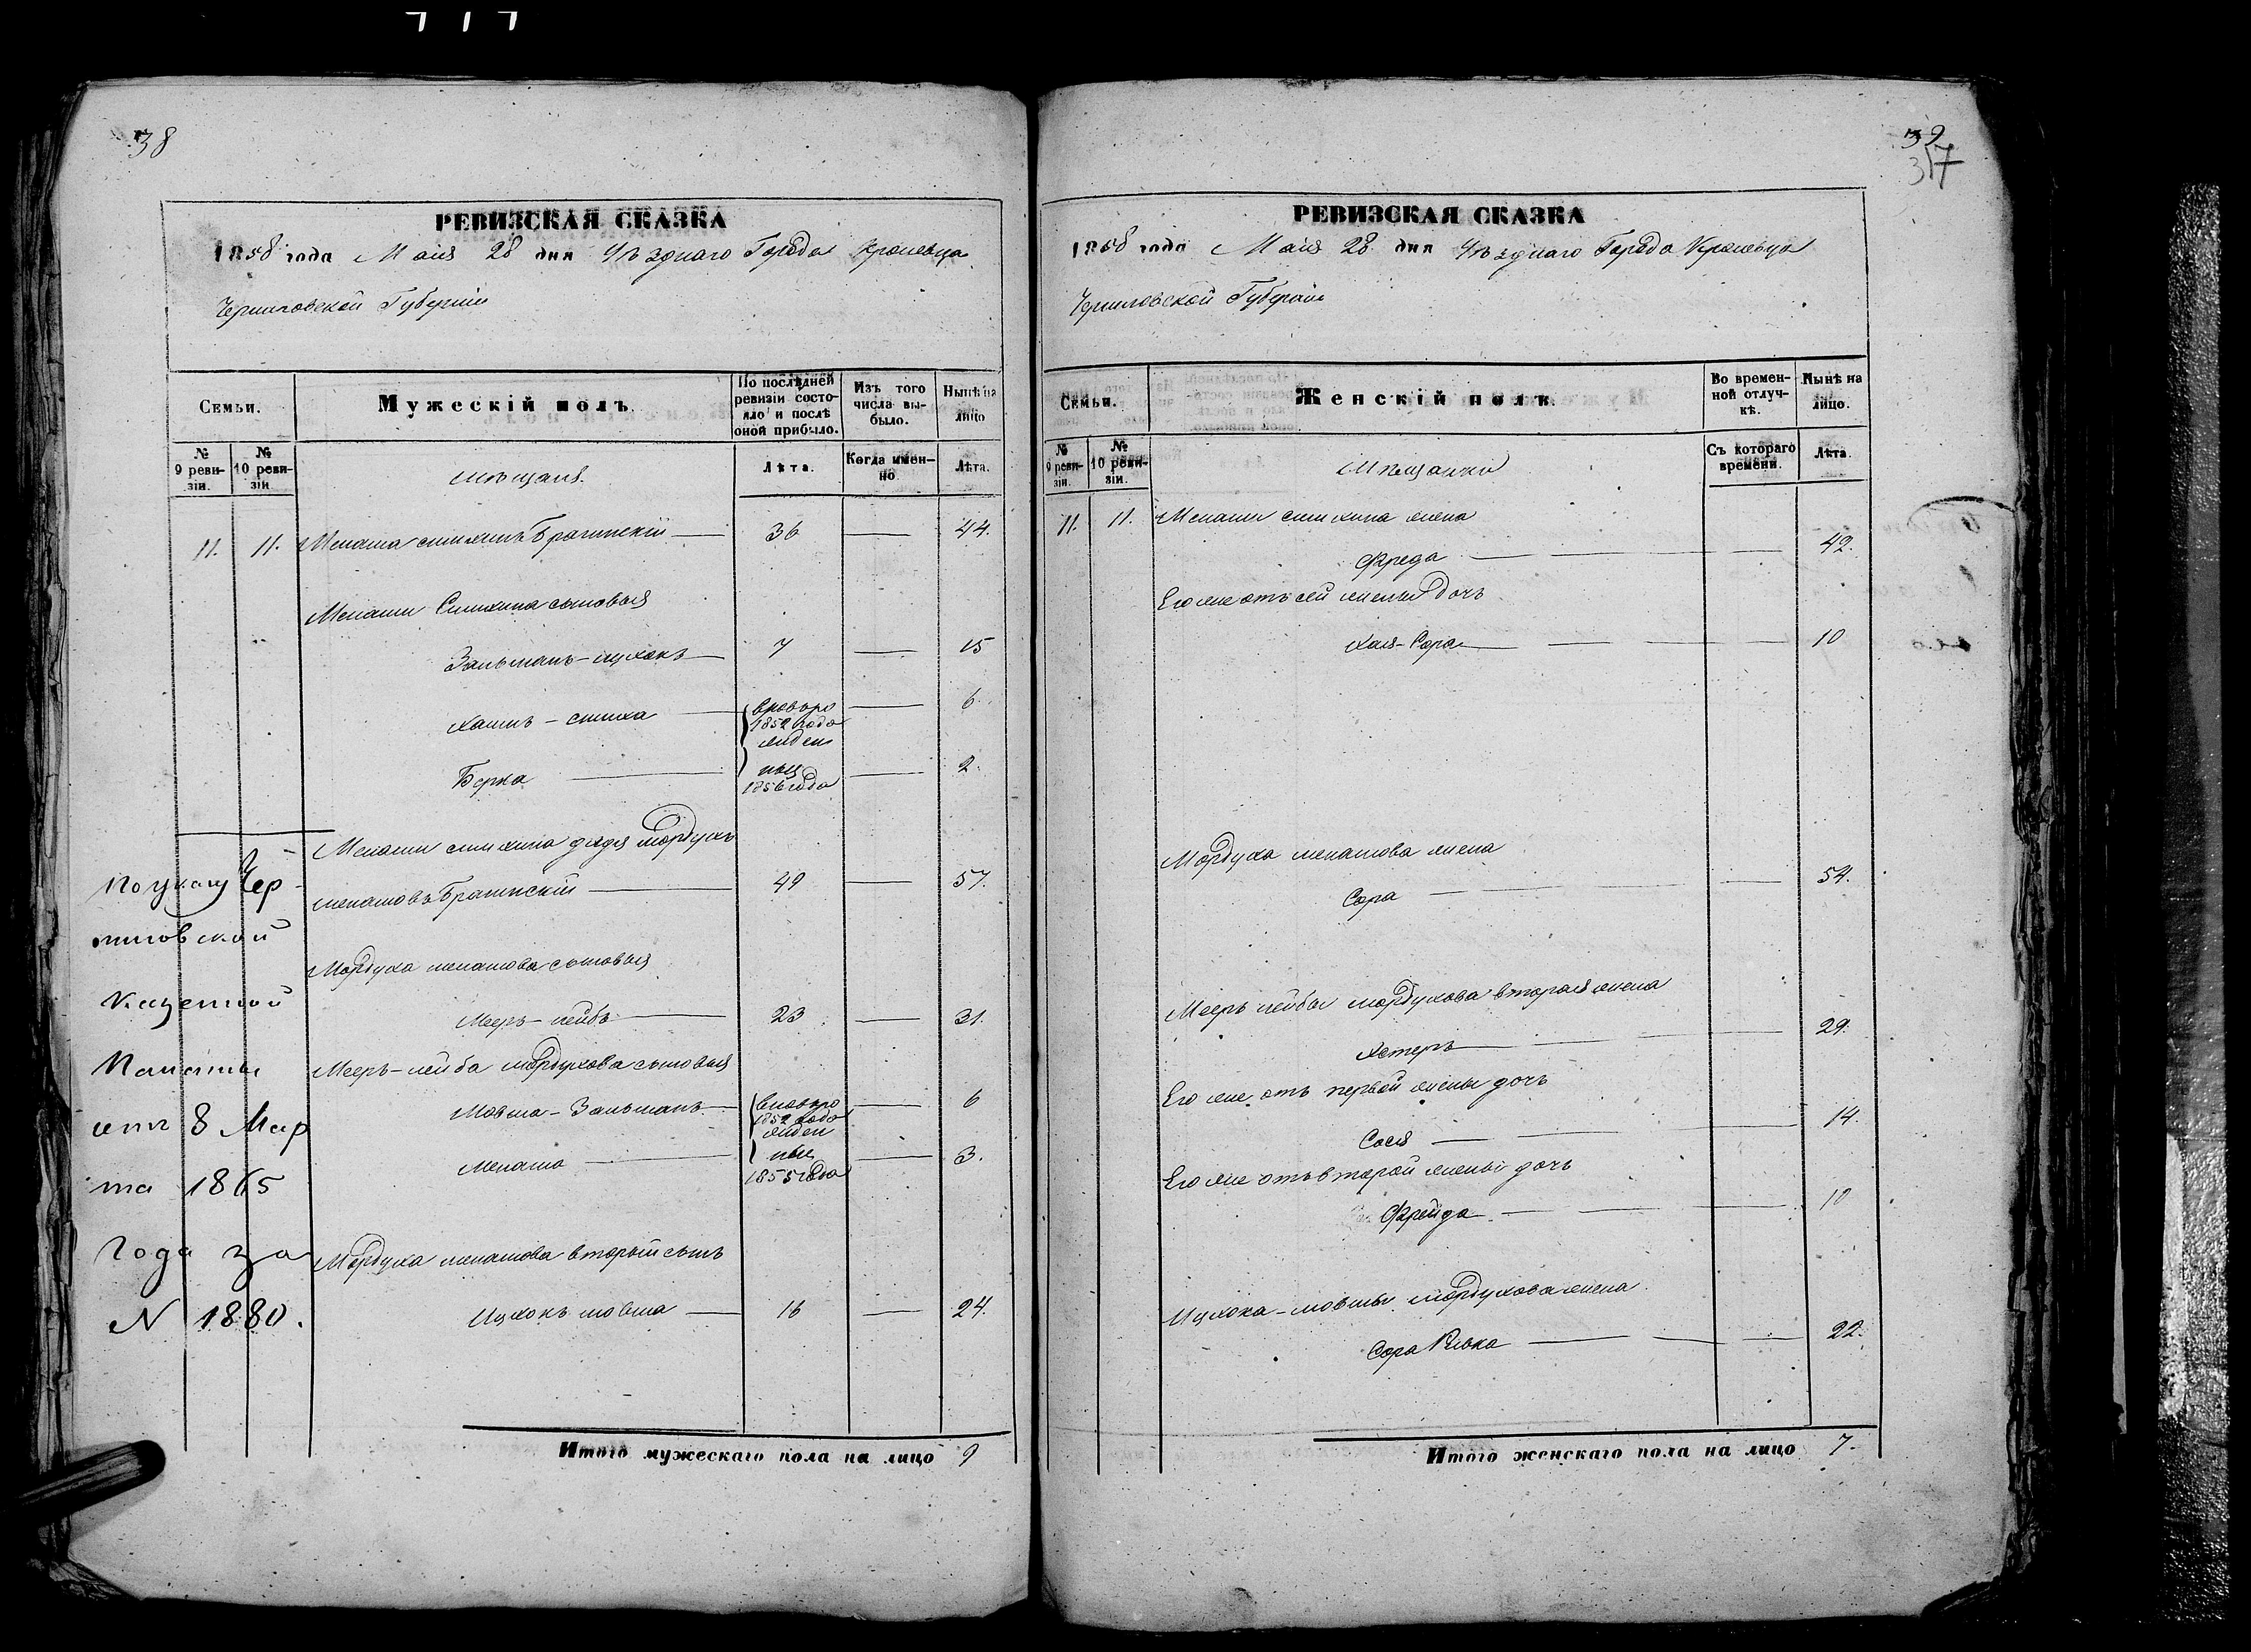 38
РЕВИЗСКАЯ СКАЗКА
1858 года Маія 28 дня Уѣзднаго Города Кролевца
Черниговской Губерніи
Семьи.
Мужескій полъ.
По послѣдней ревизіи состояло и послѣ оной прибыло.
Изъ того числа выбыло.
Нынѣ на лицо
№ 9 ревизіи.
№ 10 ревизіи
мѣщане.
Лѣта.
Когда именно
Лѣта.
11. 11. Менаша симхинъ Брагинскій 36 — 44.
Менаши Симхина сыновья
Зальманъ-ицхокъ 7 — 15
Хаимъ-симха вновьро 1852 года — 6.
жден
Берка ныя 1856 года — 2.
Менаши симхина дядя мордухъ
менашовъ Брагинскій 49 — 57.
Мордуха менашова сыновья
Мееръ-лейба 23 — 31.
Мееръ-лейба мордухова сыновья
Мовша-Зальманъ вновьро 1852 года — 6
жден
Менаша ныя 1855 года — 3.
Мордуха менашова вторый сынъ
Ицхокъ мовша 16 — 24.
По указу Чер-
ниговской
Казенной
Палаты
отъ 8 Мар
та 1865
Года за
N 1880.
Итого мужескаго пола на лицо 9
39
37
РЕВИЗСКАЯ СКАЗКА
1858 года Маія 28 дня Уѣзднаго Города Кролевца
Черниговской Губерніи
Семьи.
Женскій полъ.
Во временной отлучкѣ.
Нынѣ на лицо.
№ 9 ревизіи.
№ 10 ревизіи.
Мѣщанки
Съ котораго времени.
Лѣта.
11. 11. Менаши симхина жена
Фреда — 42.
Его же отъ сей жены дочь
Хая-Сора — 10
Мордуха менашова жена
Сора — 54.
Мееръ лейбы мордухова вторая жена
Хетеръ — 29.
Его же отъ первой жены дочь
Сося — 14.
Его же отъ второй жены дочь
Фрейда — 10
Ицхока-мовшы мордухова жена
Сора Ривка — 22.
Итого женскаго пола на лицо 7.